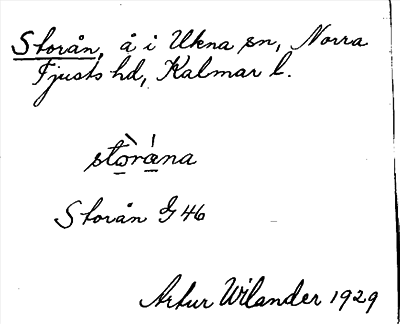 Storån, å i Ukna sn, Norra
Tjusts hd, Kalmar l.
stɔ̀rána
Storån G 46
Artur Wilander 1929